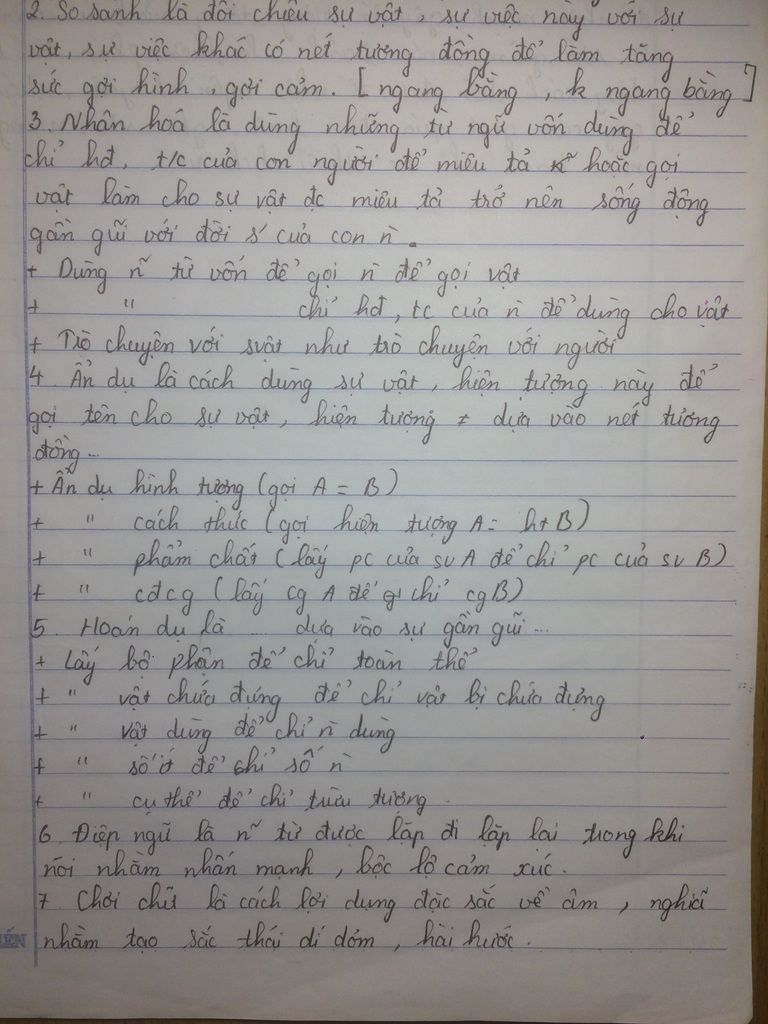 2. So sánh là đối chiếu sự vật, sự việc này với sự
vật, sự việc khác có nét tương đồng để làm tăng
sức gợi hình, gợi cảm. [ngang bằng, k ngang bằng]
3. Nhân hoá là dùng những từ ngữ vốn dùng để
chỉ hđ, t/c của con người để miêu tả hoặc gọi
vật làm cho sự vật đc miêu tả trở nên sống động
gần gũi với đời s' của con ñ.
+ Dùng ñ từ vốn để gọi ñ để gọi vật
+ " chỉ hđ, tc của ñ để dùng cho vật
+ Trò chuyện với svật như trò chuyện với người
4. Ẩn dụ là cách dùng sự vật, hiện tượng này để
gọi tên cho sự vật, hiện tượng ≠ dựa vào nét tương
đồng...
+ Ẩn dụ hình tượng (gọi A = B)
+ " cách thức (gọi hiện tượng A = ht B)
+ " phẩm chất (lấy pc của sv A để chỉ pc của sv B)
+ " cđcg (lấy cg A để chỉ cg B)
5. Hoán dụ là ... dựa vào sự gần gũi...
+ Lấy bộ phận để chỉ toàn thể
+ " vật chứa đựng để chỉ vật bị chứa đựng
+ " vật dùng để chỉ ñ dùng
+ " số ít để chỉ số ñ
+ " cụ thể để chỉ trừu tượng.
6. Điệp ngữ là ñ từ được lặp đi lặp lại trong khi
nói nhằm nhấn mạnh, bộc lộ cảm xúc.
7. Chơi chữ là cách lợi dụng đặc sắc về âm, nghĩa
nhằm tạo sắc thái dí dỏm, hài hước.